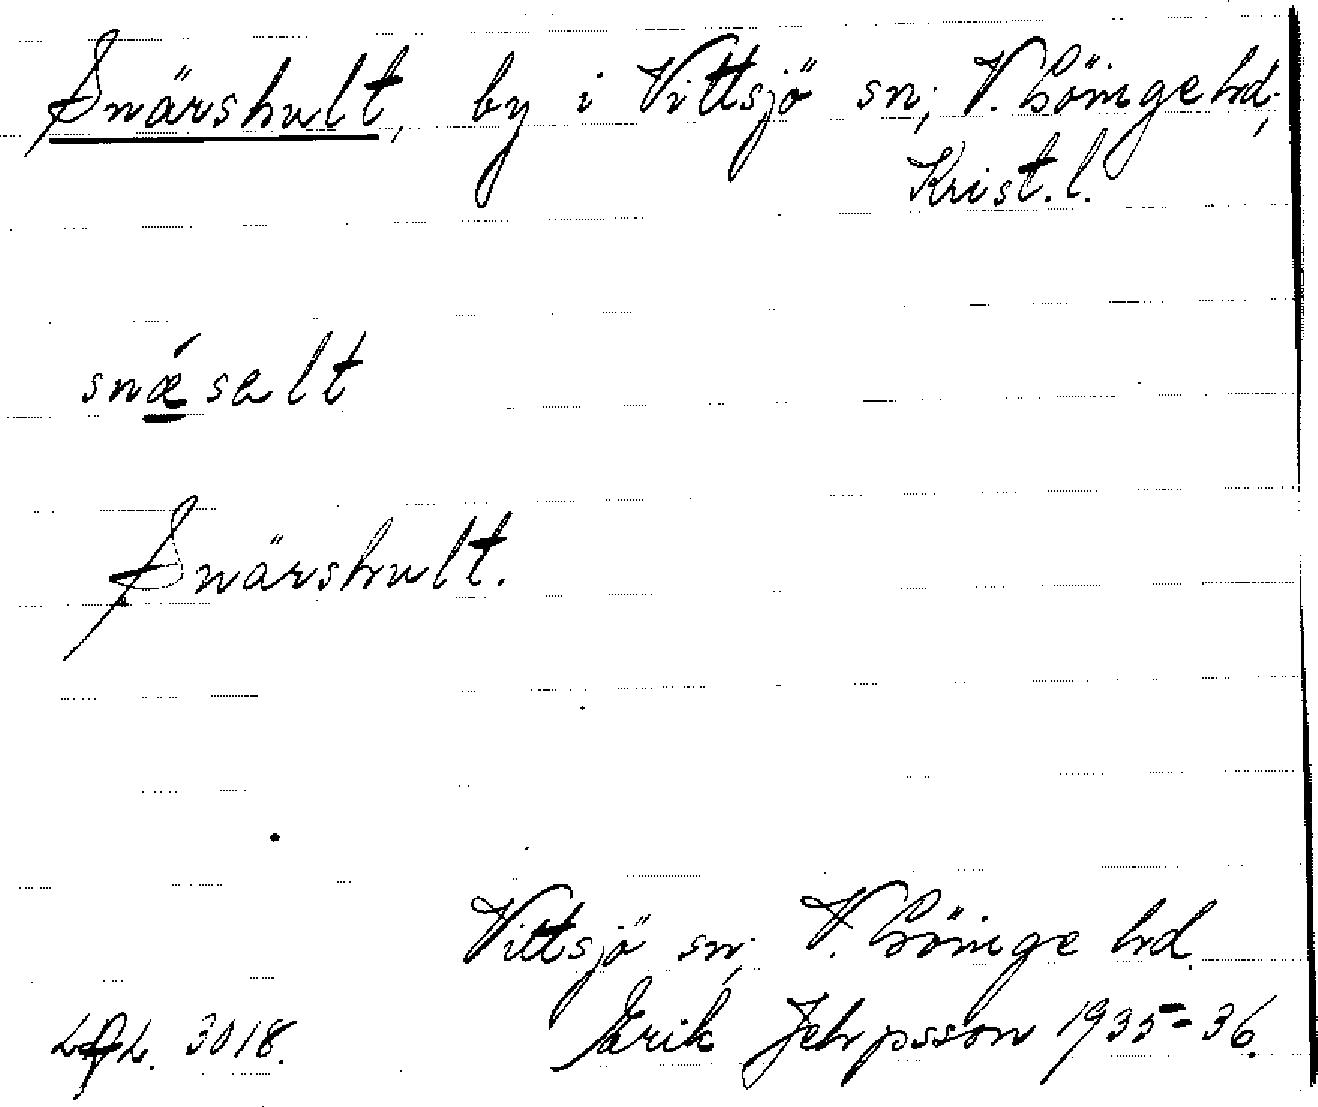 Snärshult, by i Vittsjö sn; V. Göinge hd;
Krist. l.
snǽsalt
Snärshult.
Vittsjö sn; V. Göinge hd.
Erik Jehpsson 1935-36.
LAL. 3018.